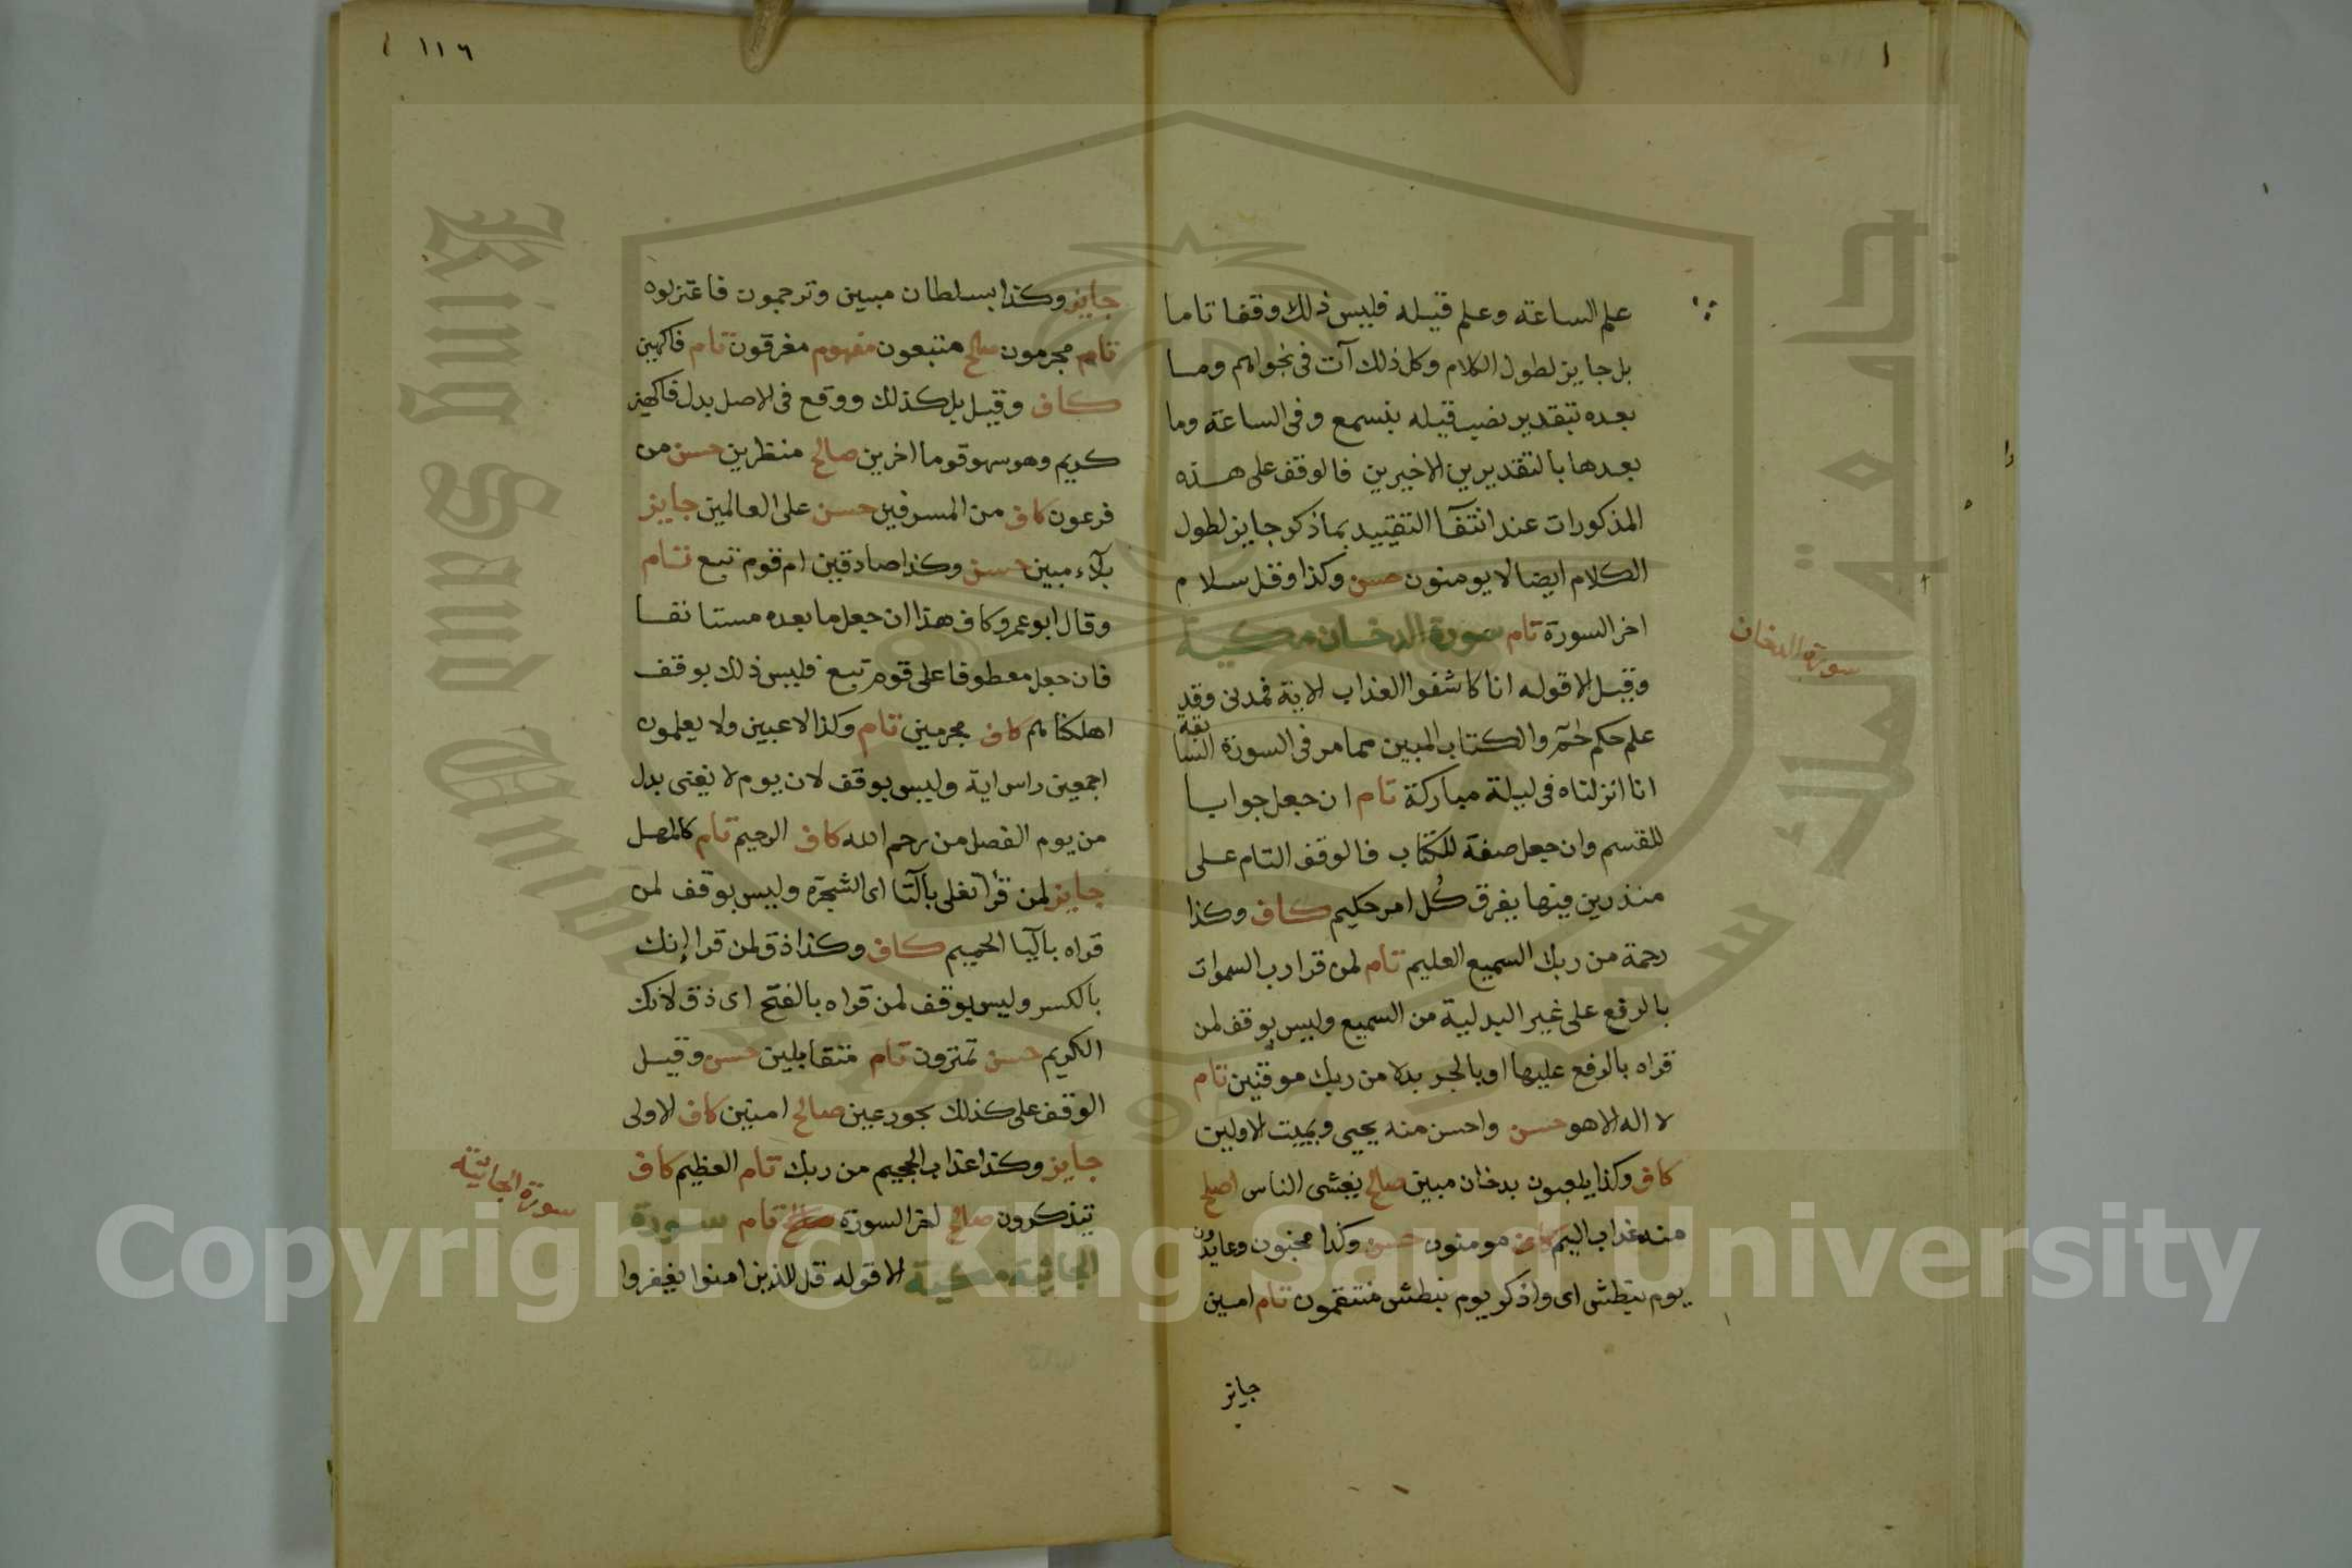 علم الساعة وعلم قيله فليس ذلك وقفا تاما
بل جايز لطول الكلام وكل ذلك آت في نجواهم وما
بعده بتقدير نصب قيله بنسمع وفي الساعة وما
بعدها بالتقديرين الاخيرين فالوقف على هذه
المذكورات عند انتفآ التقييد بما ذكر جايز لطول
الكلام ايضا لا يومنون حسن وكذا وقل سلام
اخر السورة تام سورة الدخان مكية
سورة الدخان
وقيل الا قوله انا كاشفوا العذاب الاية فمدنى وقد
علم حكم حم والكتاب المبين مما مر في السورة السابقة
انا انزلناه في ليلة مباركة تام ان جعل جوابا
للقسم وان جعل صفة للكتاب فالوقف التام على
منذرين فيها يفرق كل امر حكيم كاف وكذا
رحمة من ربك السميع العليم تام لمن قرا رب السموات
بالرفع على غير البدلية من السميع وليس بوقف لمن
قراه بالرفع عليها او بالجر بدلا من ربك موقنين تام
لا اله الا هو حسن واحسن منه يحيى ويميت الاولين
كاف وكذا يلعبون بدخان مبين صالح يغشى الناس اصلح
منه عذاب اليم كاف مومنون حسن وكذا مجنون وعايدون
يوم نبطش اى واذكر يوم نبطش منتقمون تام امين
جايز
١١٦
جايز وكذا بسلطان مبين وترجمون فاعتزلوه
تام مجرمون صالح متبعون مفهوم مغرقون تام فاكهين
كاف وقيل بل كذلك ووقع في الاصل بدل فاكهين
كريم وهو سهو قوما اخرين صالح منظرين حسن من
فرعون كاف من المسرفين حسن على العالمين جايز
بلآء مبين حسن وكذا صادقين ام قوم تبع تام
وقال ابو عمرو كاف هذا ان جعل ما بعده مستانفا
فان جعل معطوفا على قوم تبع فليس ذلك بوقف
اهلكناهم كاف مجرمين تام وكذا لاعبين ولا يعلمون
اجمعين راس اية وليس بوقف لان يوم لا يغنى بدل
من يوم الفصل من رحم الله كاف الرحيم تام كالمهل
جايز لمن قرأ تغلى بالتا اى الشجرة وليس بوقف لمن
قراه باليا الحميم كاف وكذا ذق لمن قرا إنك
بالكسر وليس بوقف لمن قراه بالفتح اى ذق لانك
الكريم حسن تمترون تام متقابلين حسن وقيل
الوقف على كذلك بحور عين صالح امنين كاف الاولى
جايز وكذا عذاب الجحيم من ربك تام العظيم كاف
يتذكرون صالح اخر السورة تام سورة
سورة الجاثية
الجاثية مكية الا قوله قل للذين امنوا يغفروا
Copyright © King Saud University
King Saud University
جامعة الملك سعود
1957